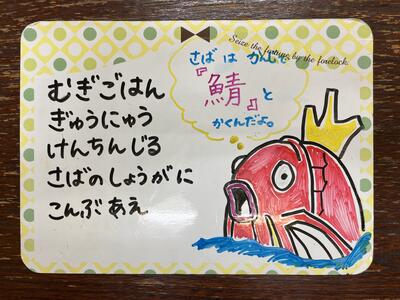 Seize the fortune by the forelock.
さばは かんじで
『鯖』と
かくんだよ。
むぎごはん
ぎゅうにゅう
けんちんじる
さばのしょうがに
こんぶあえ